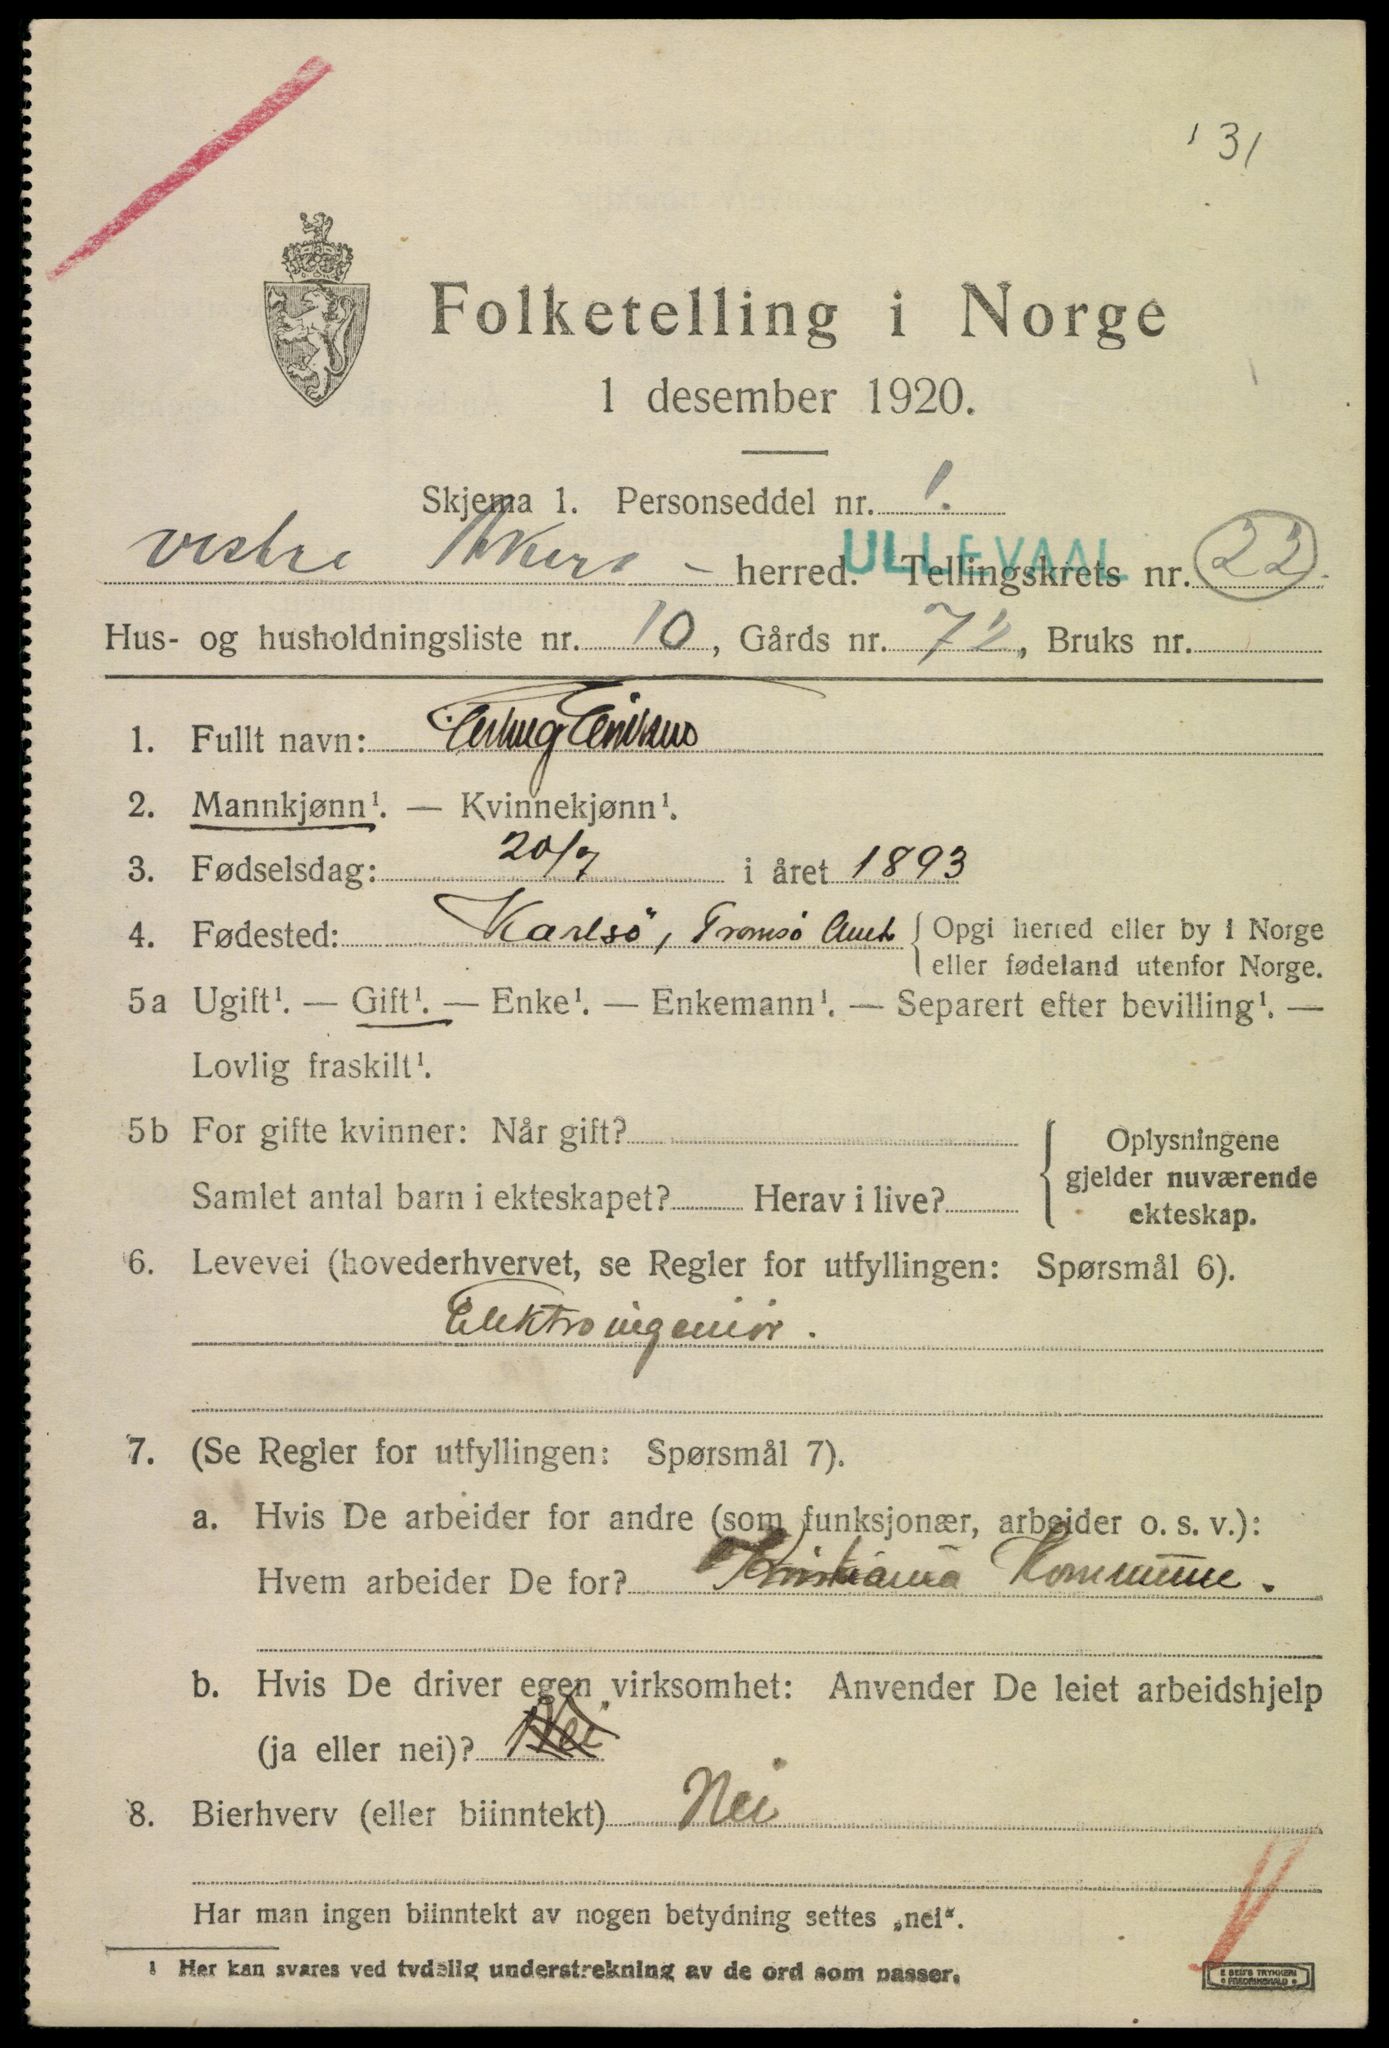 131
Folketelling i Norge
1 desember 1920.
Skjema 1. Personseddel nr. 1.
vestre Akers - herred. ULLEVAAL Tellingskrets nr. 22
Hus- og husholdningsliste nr. 10, Gårds nr. 72, Bruks nr.
1. Fullt navn: Erling
2. Mannkjønn¹. — Kvinnekjønn¹.
3. Fødselsdag: 20/7 i året 1893
4. Fødested: Karlsö, Tromsö Amt { Opgi herred eller by i Norge
eller fødeland utenfor Norge.
5a Ugift¹. — Gift¹. — Enke¹. — Enkemann¹. — Separert efter bevilling¹. —
Lovlig fraskilt¹.
5b For gifte kvinner: Når gift?
Samlet antal barn i ekteskapet? Herav i live?
Oplysningene
gjelder nuværende
ekteskap.
6. Levevei (hovederhvervet, se Regler for utfyllingen: Spørsmål 6).
Elektroingeniør.
7. (Se Regler for utfyllingen: Spørsmål 7).
a. Hvis De arbeider for andre (som funksjonær, arbeider o. s. v.):
Hvem arbeider De for? Kristiania Kommune.
b. Hvis De driver egen virksomhet: Anvender De leiet arbeidshjelp
(ja eller nei)? Nei
8. Bierhverv (eller biinntekt) Nei
Har man ingen biinntekt av nogen betydning settes „nei“.
¹ Her kan svares ved tydelig understrekning av de ord som passer.
E SEM'S TRYKKERI
FREDRIKSHALD